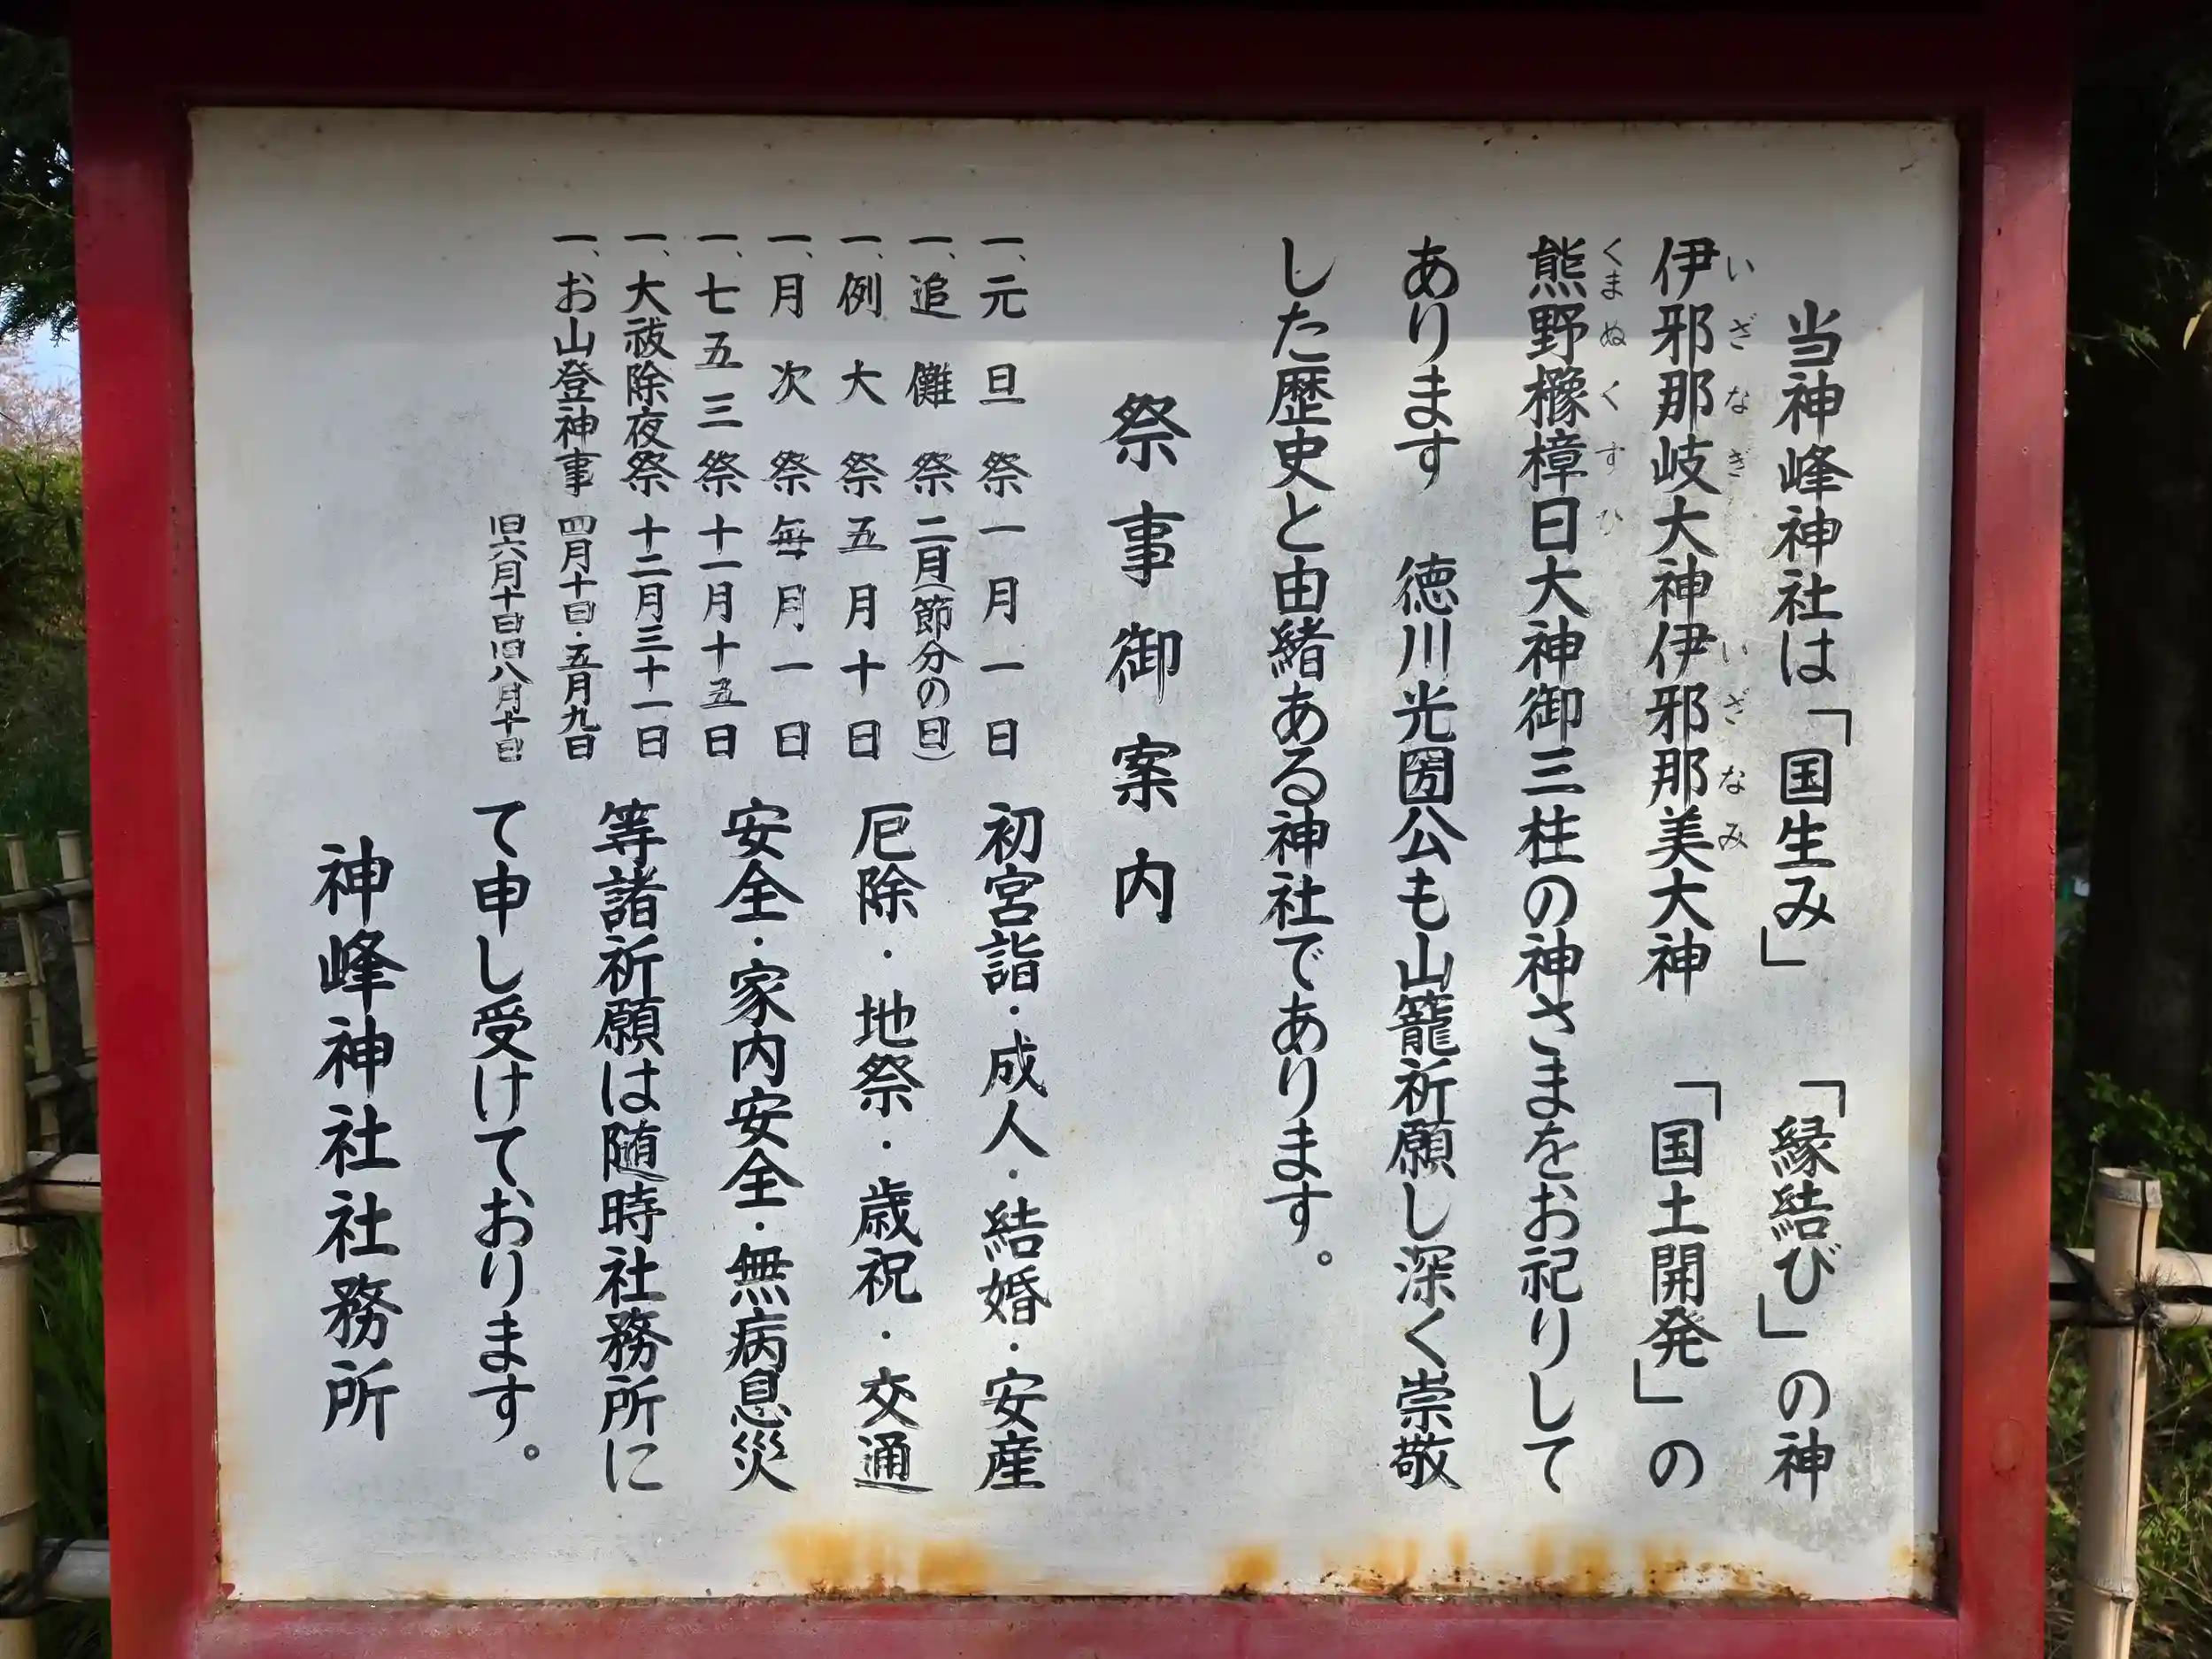 当神峰神社は「国生み」「縁結び」の神
伊邪那岐大神伊邪那美大神「国土開発」の
いざなぎ いざなみ
熊野櫲樟日大神御三柱の神さまをお祀りして
くまぬくすひ
あります 徳川光圀公も山籠祈願し深く崇敬
した歴史と由緒ある神社であります。
祭事御案内
一、元旦祭 一月一日
一、追儺祭 二月(節分の日)
一、例大祭 五月十日
一、月次祭 毎月一日
一、七五三祭 十一月十五日
一、大祓除夜祭 十二月三十一日
一、お山登神事 四月十日・五月九日
旧六月十日旧八月十日
初宮詣・成人・結婚・安産
厄除・地祭・歳祝・交通
安全・家内安全・無病息災
等諸祈願は随時社務所に
て申し受けております。
神峰神社社務所